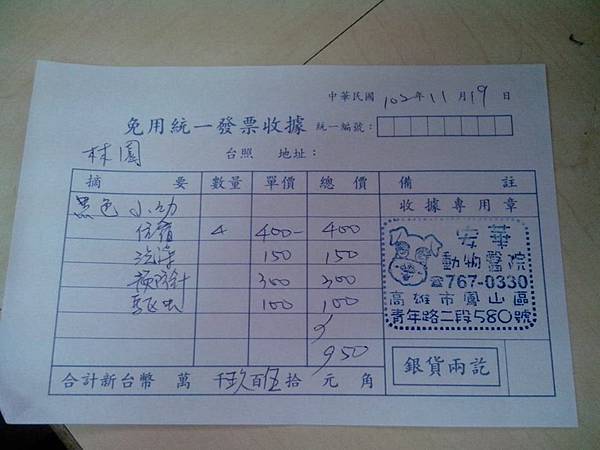 中華民國 102年 11月 19日
免用統一發票收據 統一編號：
林園 台照 地址：
摘要 數量 單價 總價 備註
黑色 小幼 收據專用章
住宿 4 400- 400
洗澡 150 150
預防針 300 300
驅虫 100 100
950
安華
動物醫院
☎767-0330
高雄市鳳山區
青年路二段580號
銀貨兩訖
合計新台幣 萬 千 玖百 伍拾 元 角